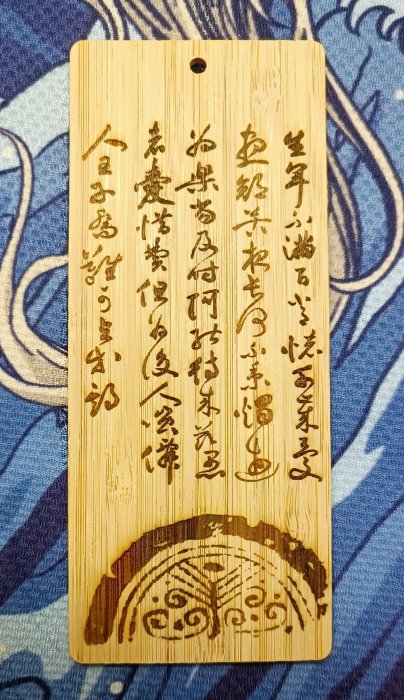 生年不滿百常懷千歲憂
晝短苦夜長何不秉燭遊
为樂當及时何能待来茲愚
者愛惜費但为後人嗤僊
人王子喬難可與等期